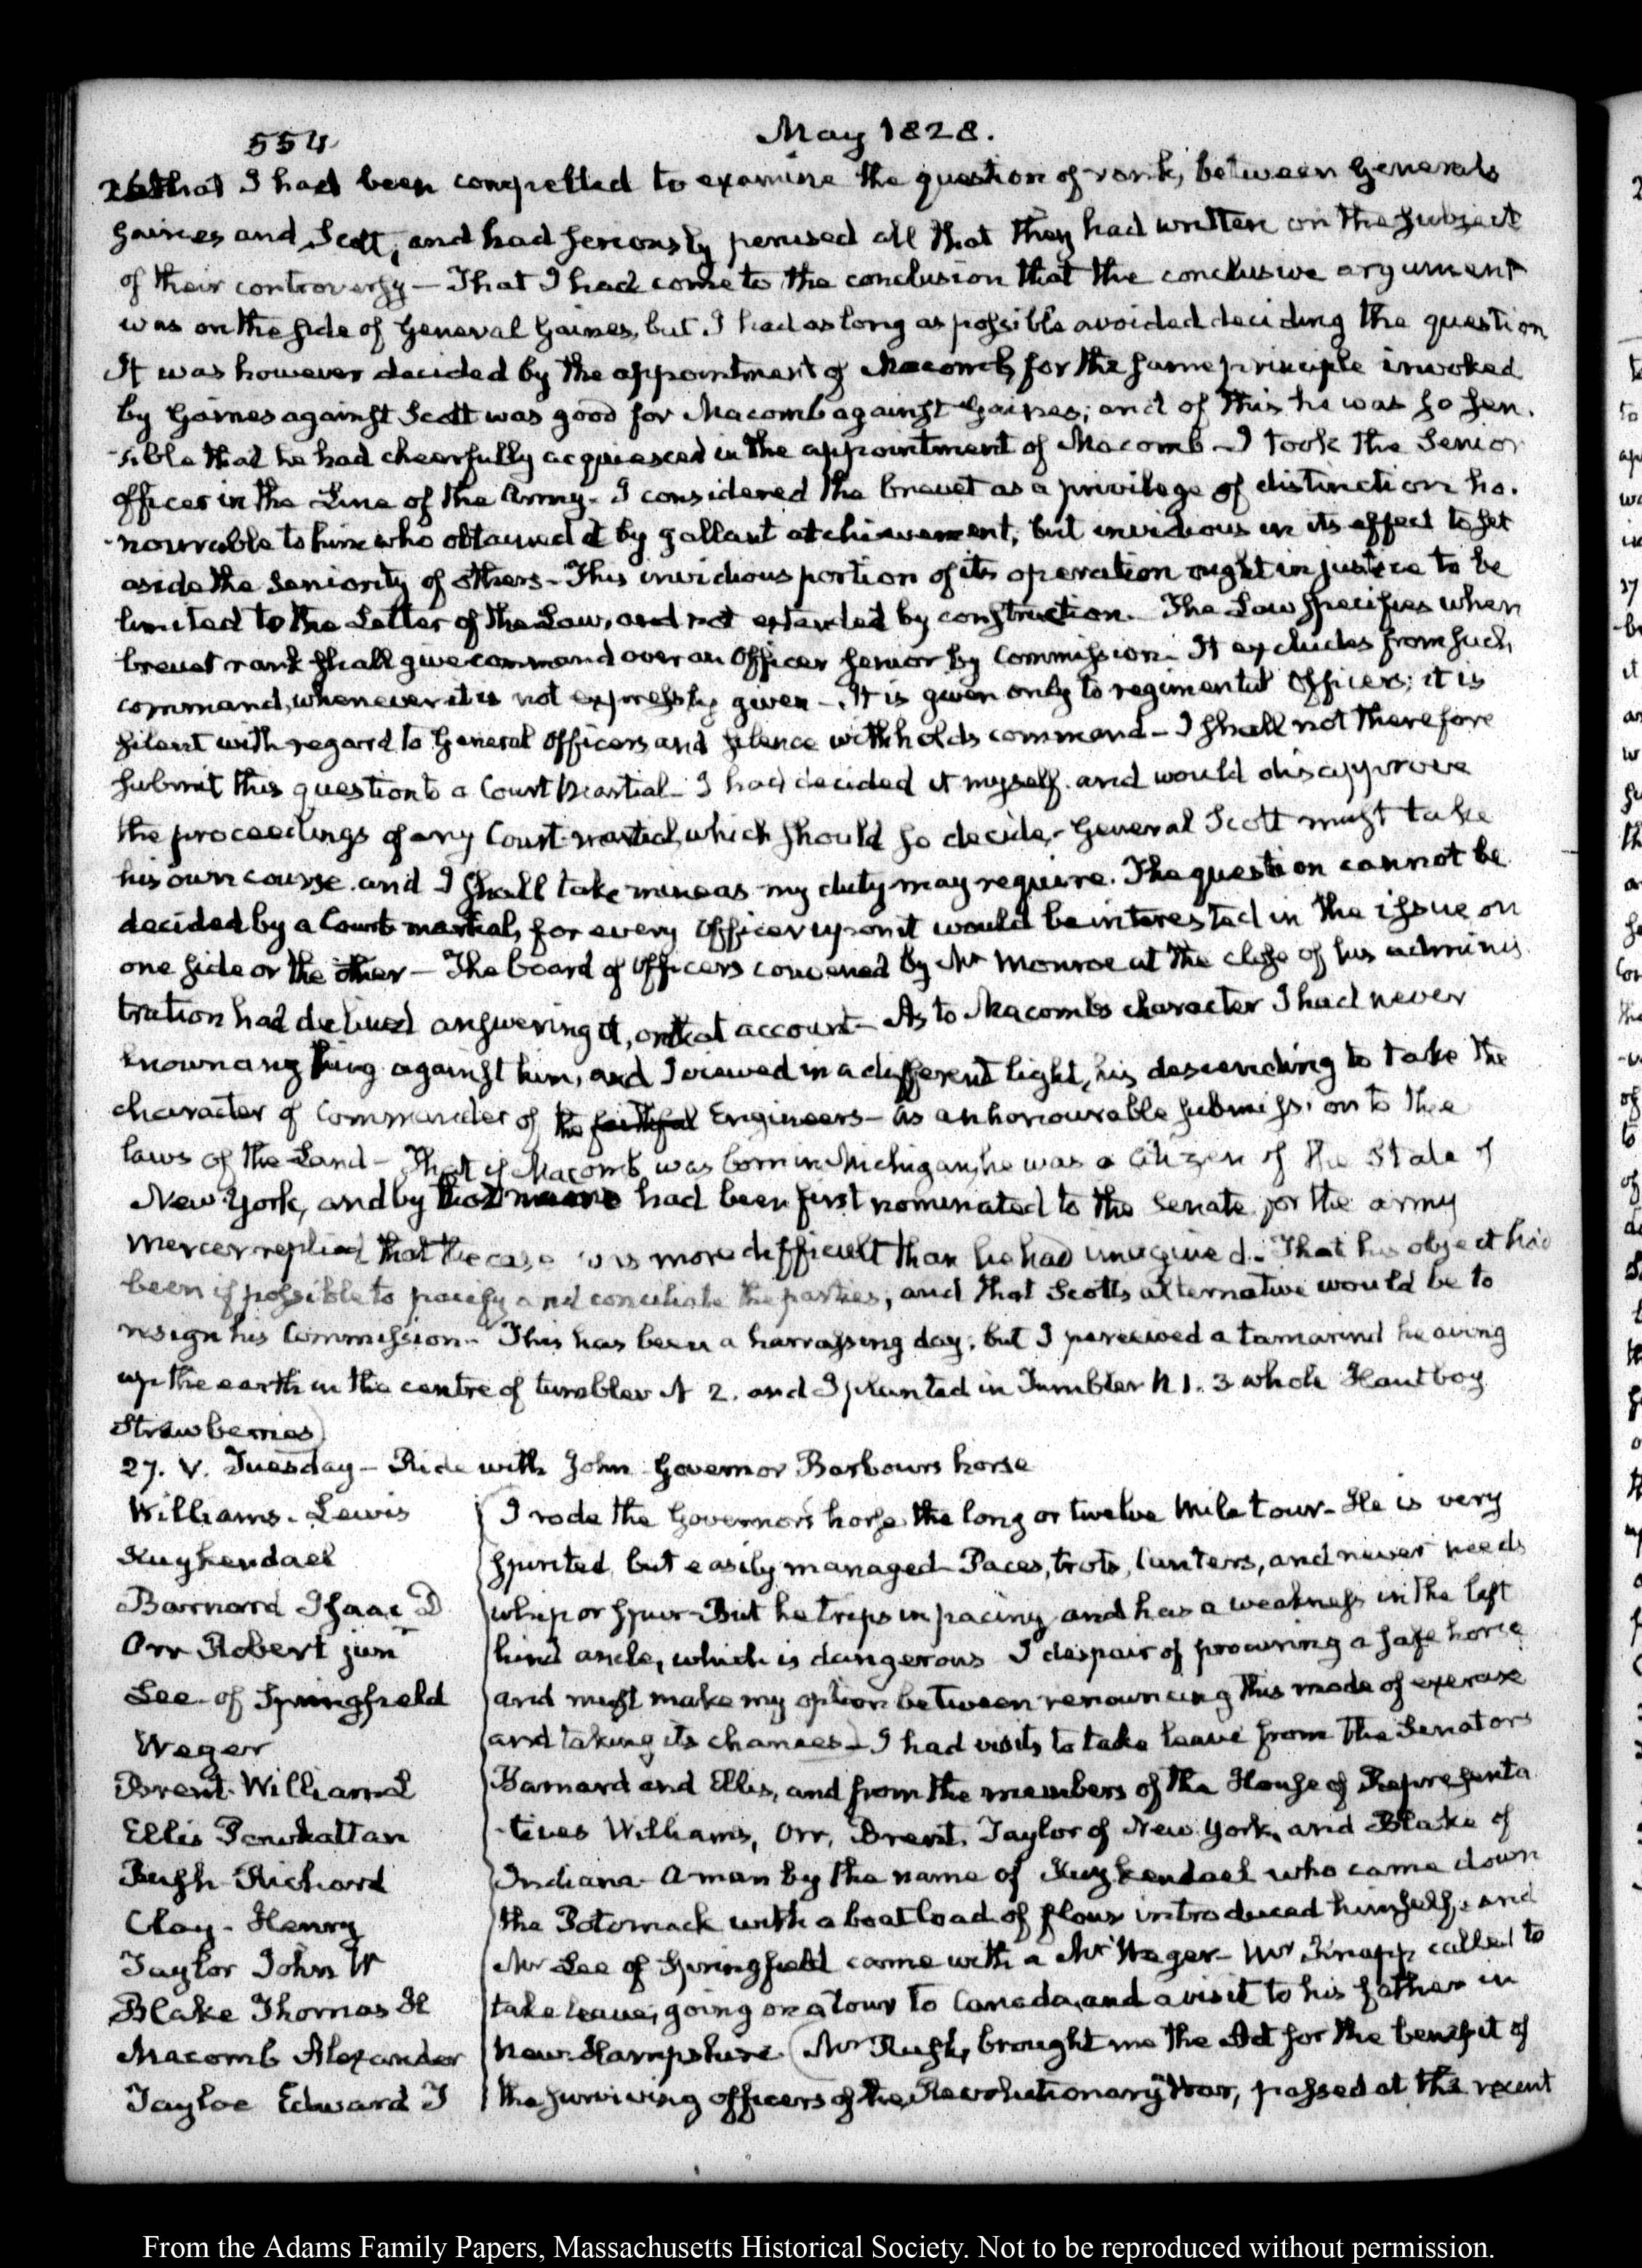 554
May 1828.
26 that I had been compelled to examine the question of rank, between Generals
Gaines and Scott, and had seriously perused all that they had written on the subject
of their controversy — That I had come to the conclusion that the conclusive argument
was on the side of General Gaines, but I had as long as possible avoided deciding the question
It was however decided by the appointment of Macomb, for the same principle invoked
by Gaines against Scott was good for Macomb against Gaines; and of this he was so sen-
-sible that he had cheerfully acquiesced in the appointment of Macomb — I took the Senior
Officer in the Line of the Army. I considered the brevet as a privilege of distinction ho-
-nourable to him who obtained it by gallant atchievement, but invidious in its effect to set
aside the Seniority of others — This invidious portion of its operation ought in justice to be
limited to the Letter of the Law, and not extended by construction. The Law specifies when
brevet rank shall give command over an Officer senior by Commission — It excludes from such
command, whenever it is not expressly given — It is given only to regimental Officers; it is
silent with regard to General Officers and silence withholds command — I shall not therefore
submit this question to a Court Martial — I had decided it myself and would disapprove
the proceedings of any Court-martial, which should so decide — General Scott must take
his own course and I shall take mine as my duty may require. The question cannot be
decided by a Court martial, for every Officer upon it would be interested in the issue on
one side or the other — The board of Officers convened by Mr Monroe at the close of his adminis
tration had declined answering it, on that account — As to Macomb's character I had never
known any thing against him, and I viewed in a different light, his descending to take the
character of Commander of the Engineers — as an honourable submission to the
laws of the Land — That if Macomb was born in Michigan, he was a Citizen of the State of
New York, and by had been first nominated to the Senate for the army
Mercer replied that the case was more difficult than he had imagined. That his object had
been if possible to pacify and conciliate the parties, and that Scott's alternative would be to
resign his Commission — This has been a harrassing day; but I perceived a tamarind heaving
up the earth in the centre of tumbler N 2. and I planted in Tumbler N 1. 3 whole Hautboy
Strawberries)
27. V. Tuesday — Ride with John Governor Barbours horse
Williams. Lewis
Kuykendael
Barnard Isaac D
Orr Robert junr
Lee of Springfield
Weger
Brent William L
Ellis Powhattan
Rush Richard
Clay Henry
Taylor John W
Blake Thomas H
Macomb Alexander
Tayloe Edward T
I rode the Governor's horse the long or twelve mile tour — He is very
spirited but easily managed — Paces, trots, Canters, and never needs
whip or spur — But he trips in pacing and has a weakness in the left
hind ancle, which is dangerous I despair of procuring a safe horse
and must make my option between renouncing this mode of exercise
and taking its chances) — I had visits to take leave from the Senators
Barnard and Ellis, and from the members of the House of Representa
-tives Williams, Orr, Brent, Taylor of New York, and Blake of
Indiana. A man by the name of Kuykendael who came down
the Potomack with a boat load of flour introduced himself, and
Mr Lee of Springfield came with a Mr Weger — Mr Knapp called to
take leave, going on a tour to Canada, and a visit to his father in
New Hampshire (Mr Rush, brought me the Act for the benefit of
the surviving officers of the Revolutionary War, passed at the recent
From the Adams Family Papers, Massachusetts Historical Society. Not to be reproduced without permission.